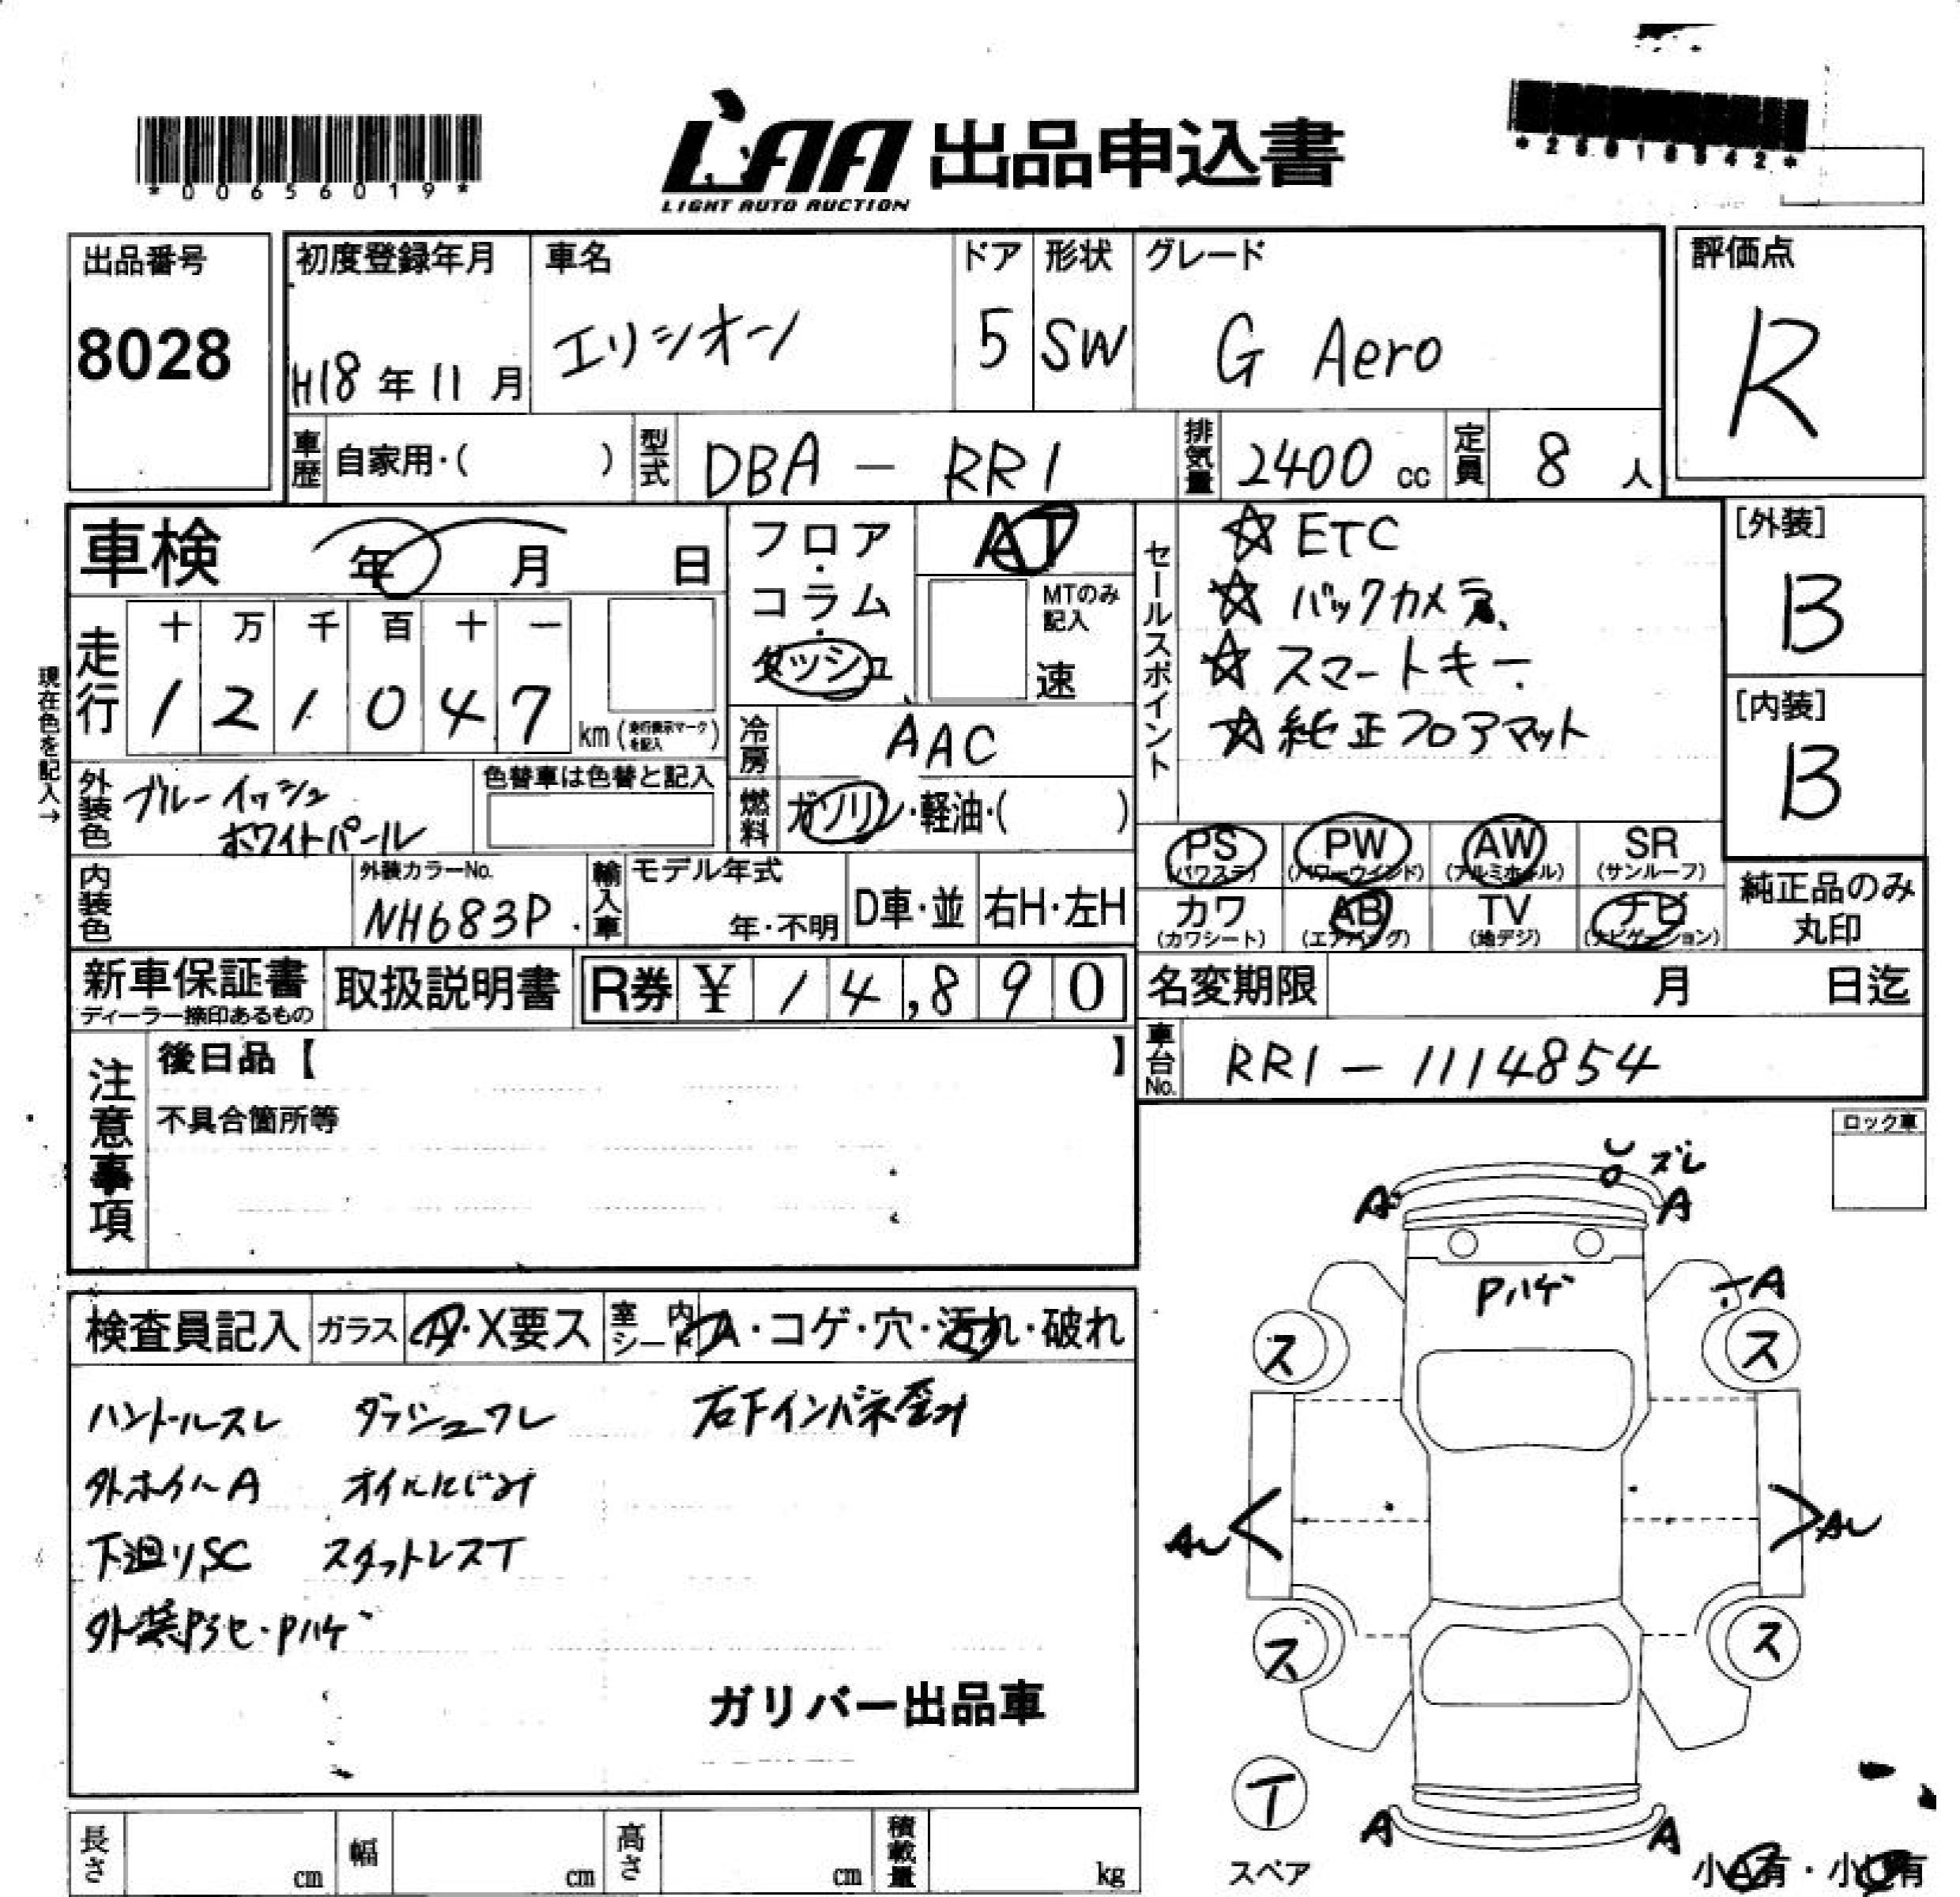 *00656019*
LAA 出品申込書
LIGHT AUTO AUCTION
*26018542*
出品番号
8028
初度登録年月
H18年11月
車名
エリシオン
ドア
5
形状
SW
グレード
G Aero
評価点
R
車歴 自家用・( )
型式 DBA - RR1
排気量 2400 cc
定員 8 人
車検 年 月 日
フロア・コラム・ダッシュ
AT
MTのみ記入
速
走行
十 万 千 百 十 一
1 2 1 0 4 7 km (走行表示マークを記入)
現在色を記入→
冷房 AAC
燃料 ガソリン・軽油・( )
外装色 ブルーイッシュ
ホワイトパール
色替車は色替と記入
内装色
外装カラーNo.
NH683P
輸入車
モデル年式
年・不明
D車・並
右H・左H
セールスポイント
☆ ETC
☆ バックカメラ
☆ スマートキー
☆ 純正フロアマット
[外装]
B
[内装]
B
PS (パワステ)
PW (パワーウインド)
AW (アルミホイル)
SR (サンルーフ)
カワ (カワシート)
AB (エアバッグ)
TV (地デジ)
ナビ (ナビゲーション)
純正品のみ
丸印
新車保証書
ディーラー捺印あるもの
取扱説明書
R券 ¥ 14,890
名変期限 月 日迄
車台No. RR1 - 1114854
注意事項
後日品【 】
不具合箇所等
ロック車
検査員記入
ガラス
A・X要ス
室内シート
A・コゲ・穴・汚れ・破れ
ハンドルスレ ダッシュワレ 右下インパネ歪み
外ホイールA オイルにじみ
下廻りSC スタットレスT
外装Pヨセ・Pハゲ
ガリバー出品車
ズレ
A
A
Pハゲ
A
ス
ス
AU
AU
ス
ス
T
スペア
A
A
小A有・小U有
長さ cm
幅 cm
高さ cm
積載量 kg